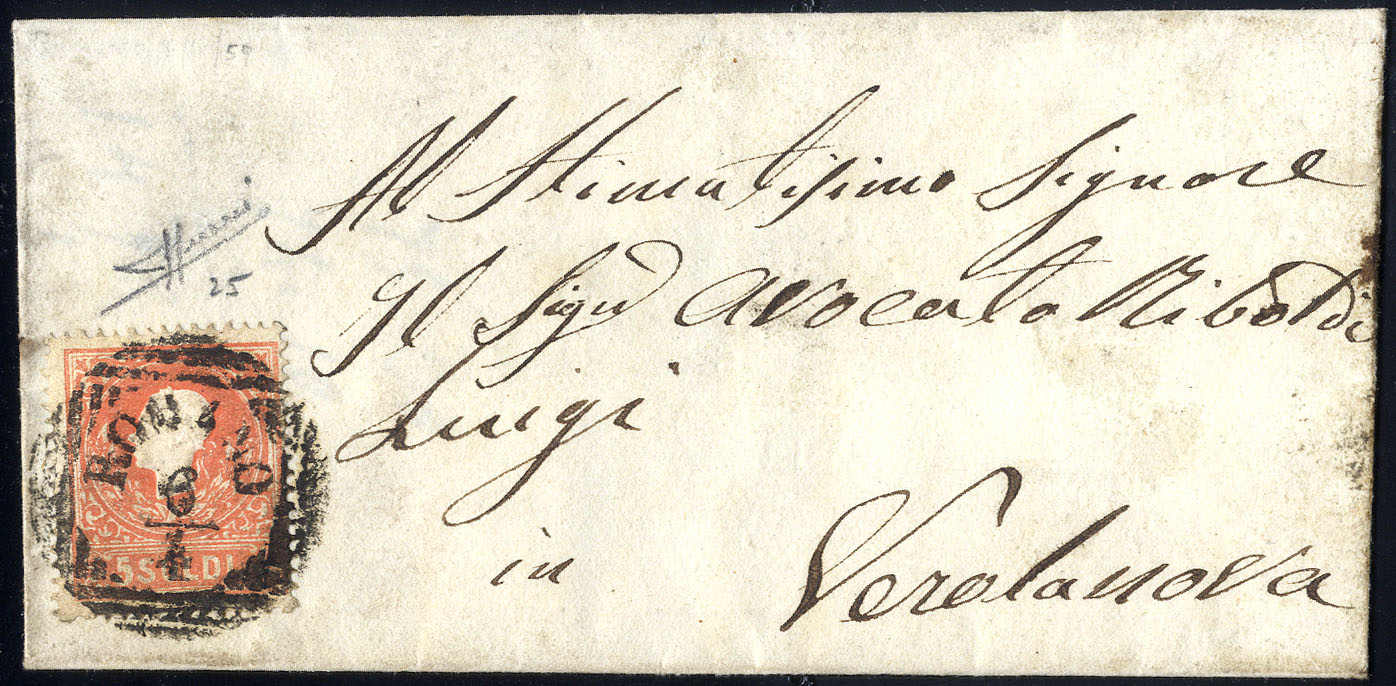 59
Al Stimatisimo Signore
Il Sigr Avocato Riboldi
Luigi
in Verolanova
25
ROVATO
6
4
5 SOLDI